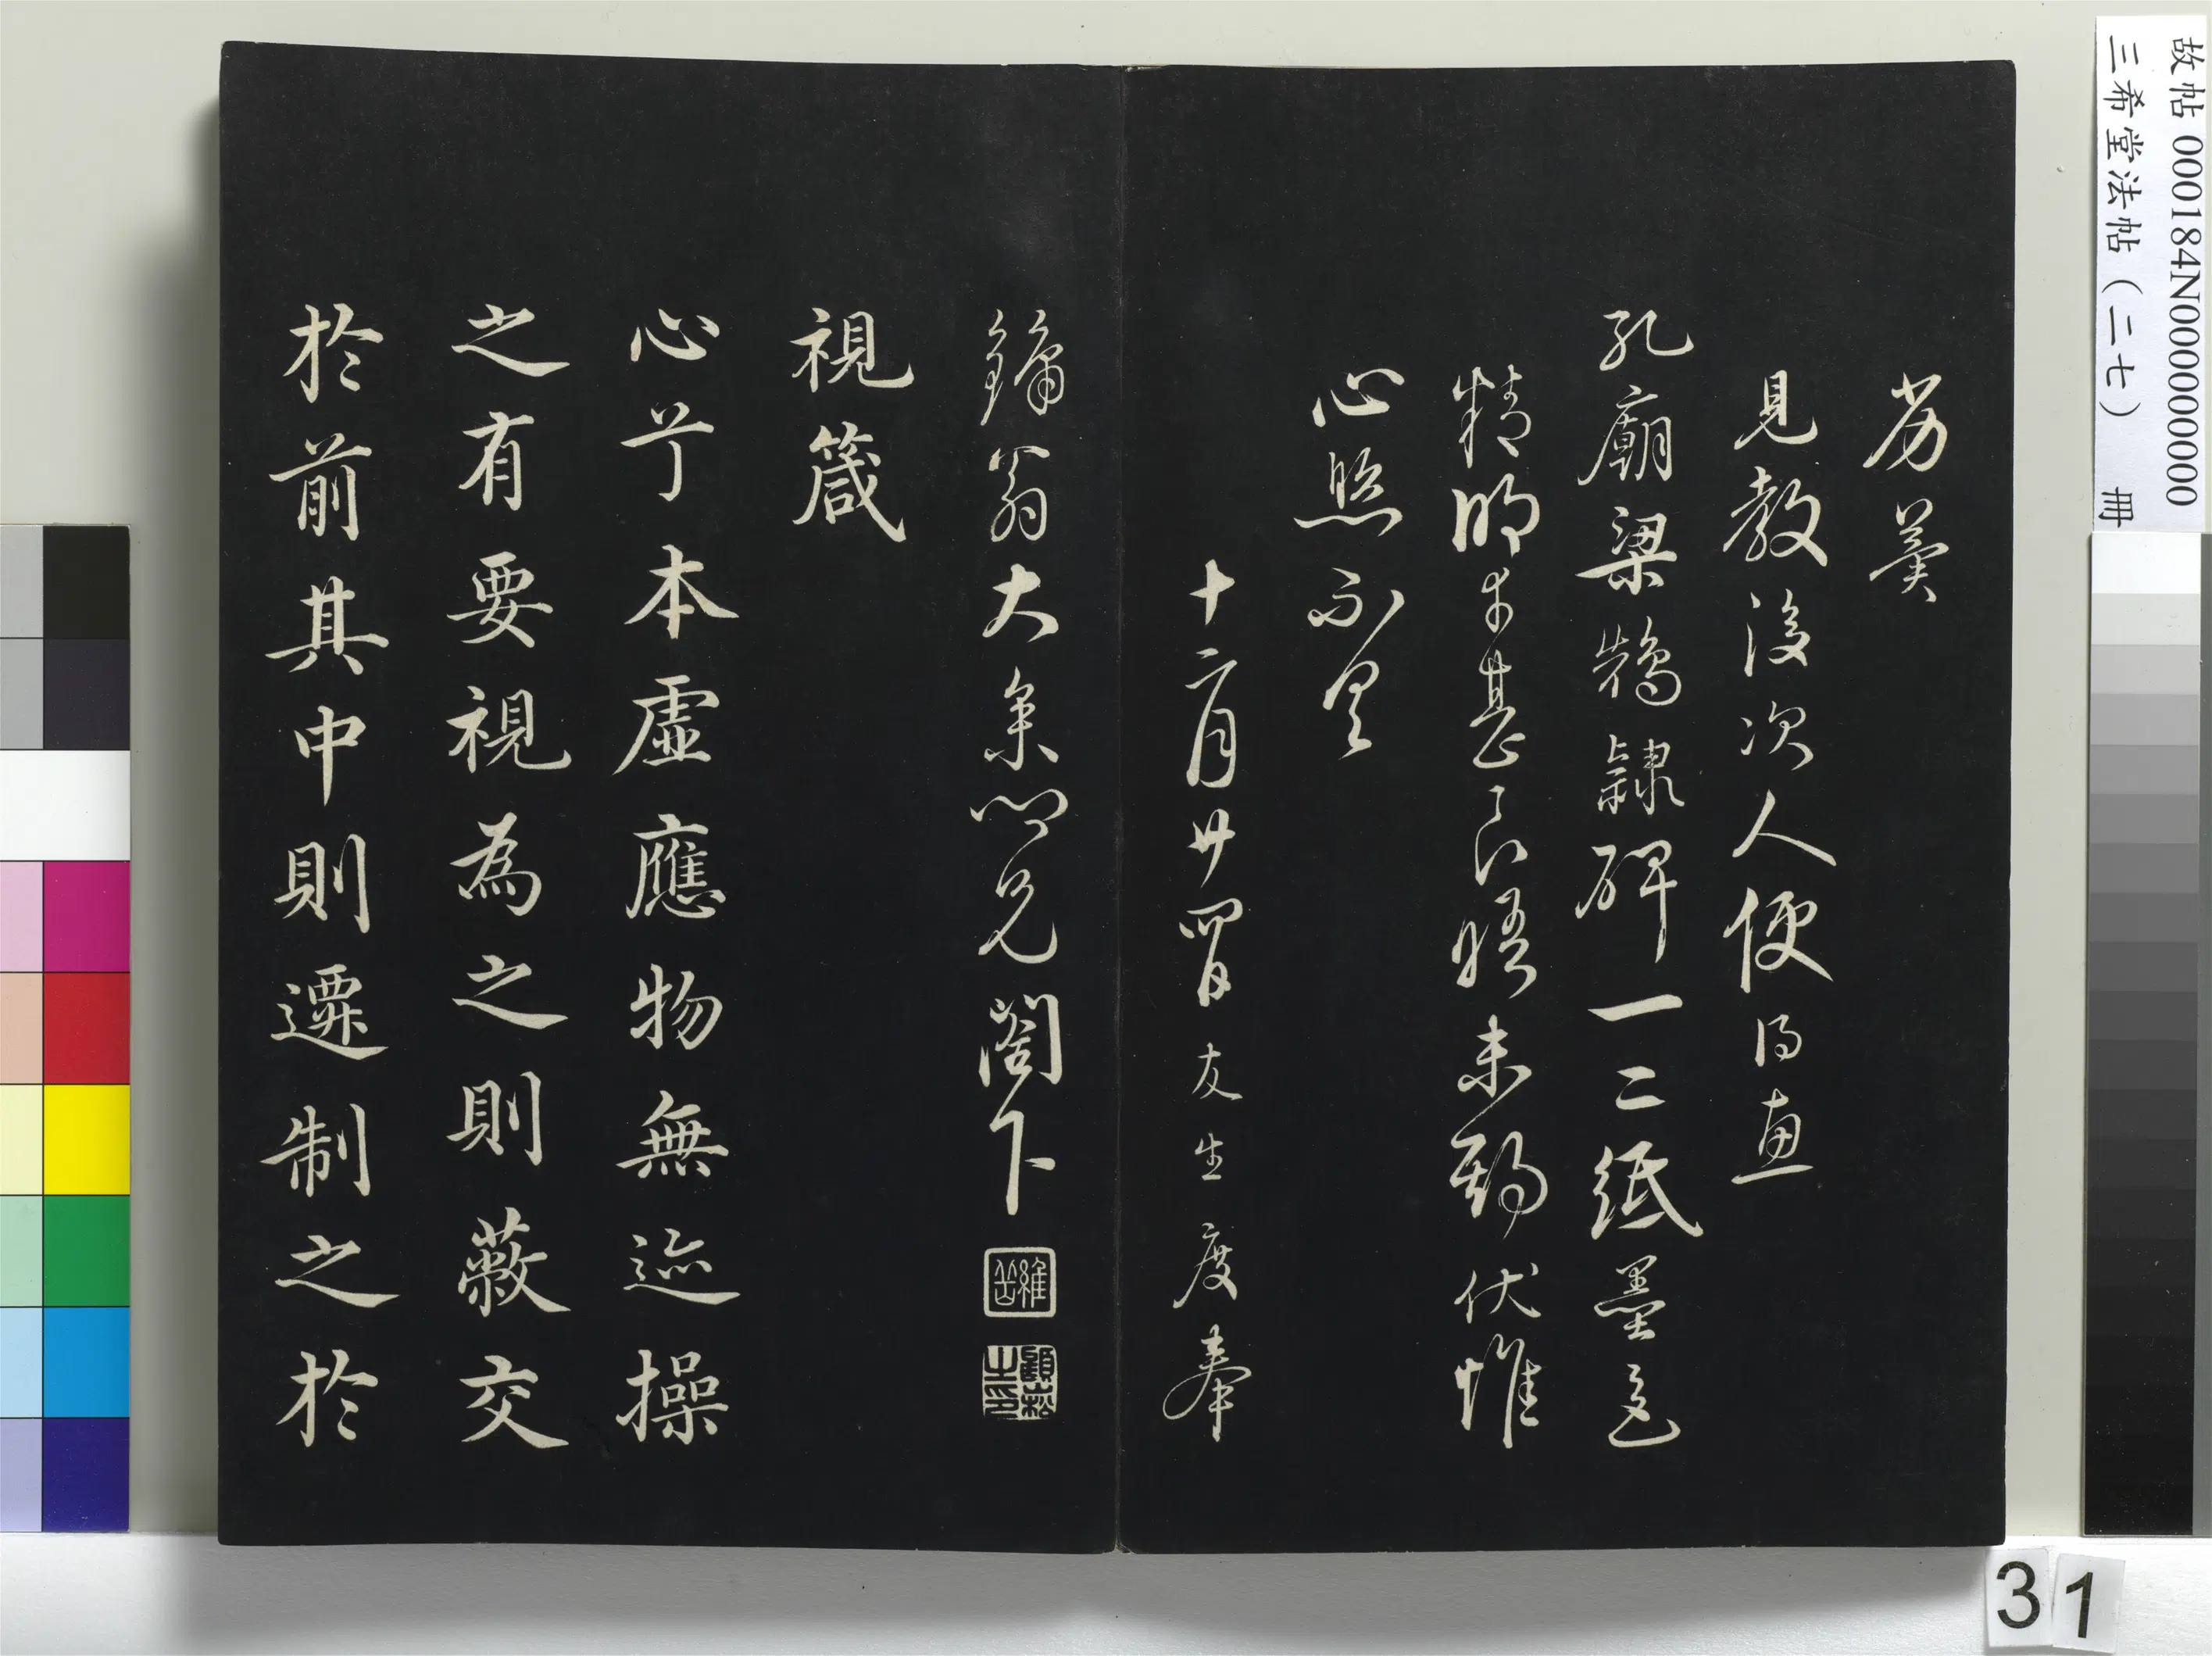 冀
見教後次人便得惠
孔廟梁鵠隸碑一二紙墨色
精明幸甚良晤未期伏惟
心照不具
十二月廿四日友生度奉
鏞翁大參兄閣下
維岳
顧崧之印
視箴
心兮本虛應物無迹操
之有要視為之則蔽交
於前其中則遷制之於
故帖 000184N000000000
三希堂法帖(二七) 冊
31